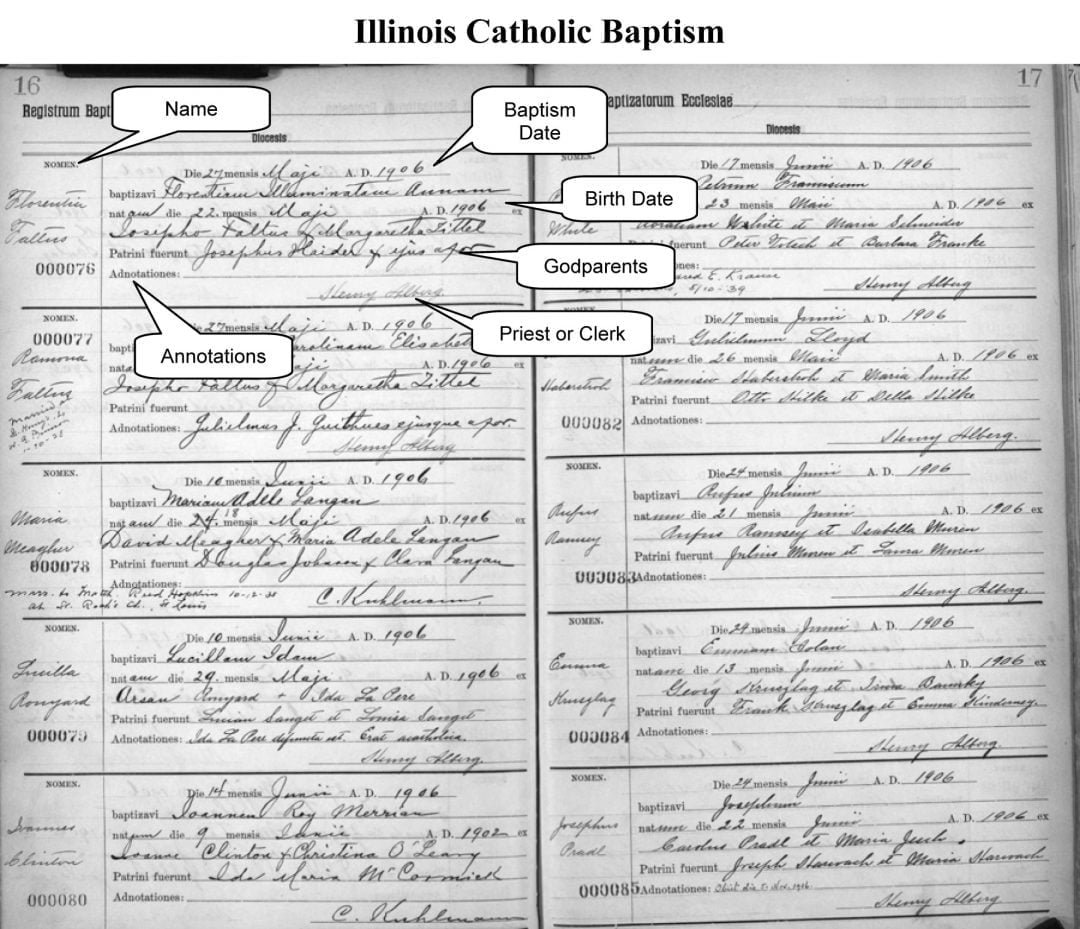 Illinois Catholic Baptism
16
Registrum Bapt
Diocesis
Name
Baptism
Date
NOMEN.
Die 27 mensis Maji A. D. 1906
Florentin
baptizavi Florentiam Illuminatam Annam
natam die 22. mensis Maji A. D. 1906 ex
Birth Date
Faltus
Josepho Faltus & Margaretha Zittel
Patrini fuerunt Josephus Haider & ejus
Godparents
000076
Adnotationes:
Henry Alberg
Priest or Clerk
Annotations
NOMEN.
27 mensis Maji A. D. 1906
000077
bapti
arolinam Elisabet
Ramona
nata
aji A. D. 1906
Josepho Faltus & Margaretha Zittel
Patrini fuerunt
Adnotationes: Gulielmus J. Guithues ejusque
married at
Henry Alberg
NOMEN.
Die 10 mensis Junii A. D. 1906
baptizavi Mariam Adele Langan
Maria
natam die 24. 18 mensis Maji A. D. 1906 ex
Meagher
David Meagher & Maria Adele Langan
000078
Patrini fuerunt Douglas Johnson & Clara Langan
Adnotationes:
marr. to Reed Hopkins 10-12-38
at St. Roch's Ch., St Louis
C. Kuhlmann.
NOMEN.
Die 10 mensis Junii A. D. 1906
baptizavi Lucillam Idam
Lucilla
natam die 29. mensis Maji A. D. 1906 ex
Rougard
Ida La Pere
Patrini fuerunt Lucian Sanget et Louisa Sanget
000079
Adnotationes: Ida La Pere defuncta est. Erat acatholica.
Henry Alberg.
NOMEN.
Die 14 mensis Junii A. D. 1906
baptizavi Joannem Roy Merrian
Joannes
natum die 9 mensis Junii A. D. 1902 ex
Clinton
Joanne Clinton & Christina O'Leary
Patrini fuerunt Ida Maria McCormick
000080
C. Kuhlmann
17
aptizatorum Ecclesiae
Diocesis
NOMEN.
Die 17 mensis Junii A. D. 1906
Petrum Franciscum
23 mensis Maii A. D. 1906 ex
White
Abraham White et Maria Schneider
Patrini fuerunt Peter et Barbara Franke
nes:
E. Krause
5/10-39
Henry Alberg
Die 17 mensis Junii A. D. 1906
baptizavi Gulielmum Lloyd
natum die 26 mensis Maii A. D. 1906 ex
Haberstroh
Francisco Haberstroh et Maria Smith
Patrini fuerunt Otto Hilke et Della Hilke
000082
Adnotationes:
Henry Alberg.
NOMEN.
Die 24 mensis Junii A. D. 1906
baptizavi Rufus Julium
Rufus
natum die 21 mensis Junii A. D. 1906 ex
Ramsey
Rufus Ramsey et Isabella Muren
Patrini fuerunt Julius Muren et Laura Muren
000083
Adnotationes:
Henry Alberg.
NOMEN.
Die 24 mensis Junii A. D. 1906
baptizavi Emmam
Emma
natam die 13 mensis Junii A. D. 1906 ex
Kruszlag
Georg Kruszlag et
Patrini fuerunt Frank Kruszlag et Emma
000084
Adnotationes:
Henry Alberg.
NOMEN.
Die 24 mensis Junii A. D. 1906
baptizavi Josephum
Josephus
natum die 22 mensis Junii A. D. 1906 ex
Pradl
Carolus Pradl et Maria
Patrini fuerunt Joseph Starwach et Maria Starwach
000085
Adnotationes: Obiit Nov. 1916.
Henry Alberg